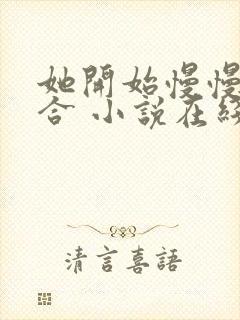 她開始慢慢
合 小說在
清言喜語